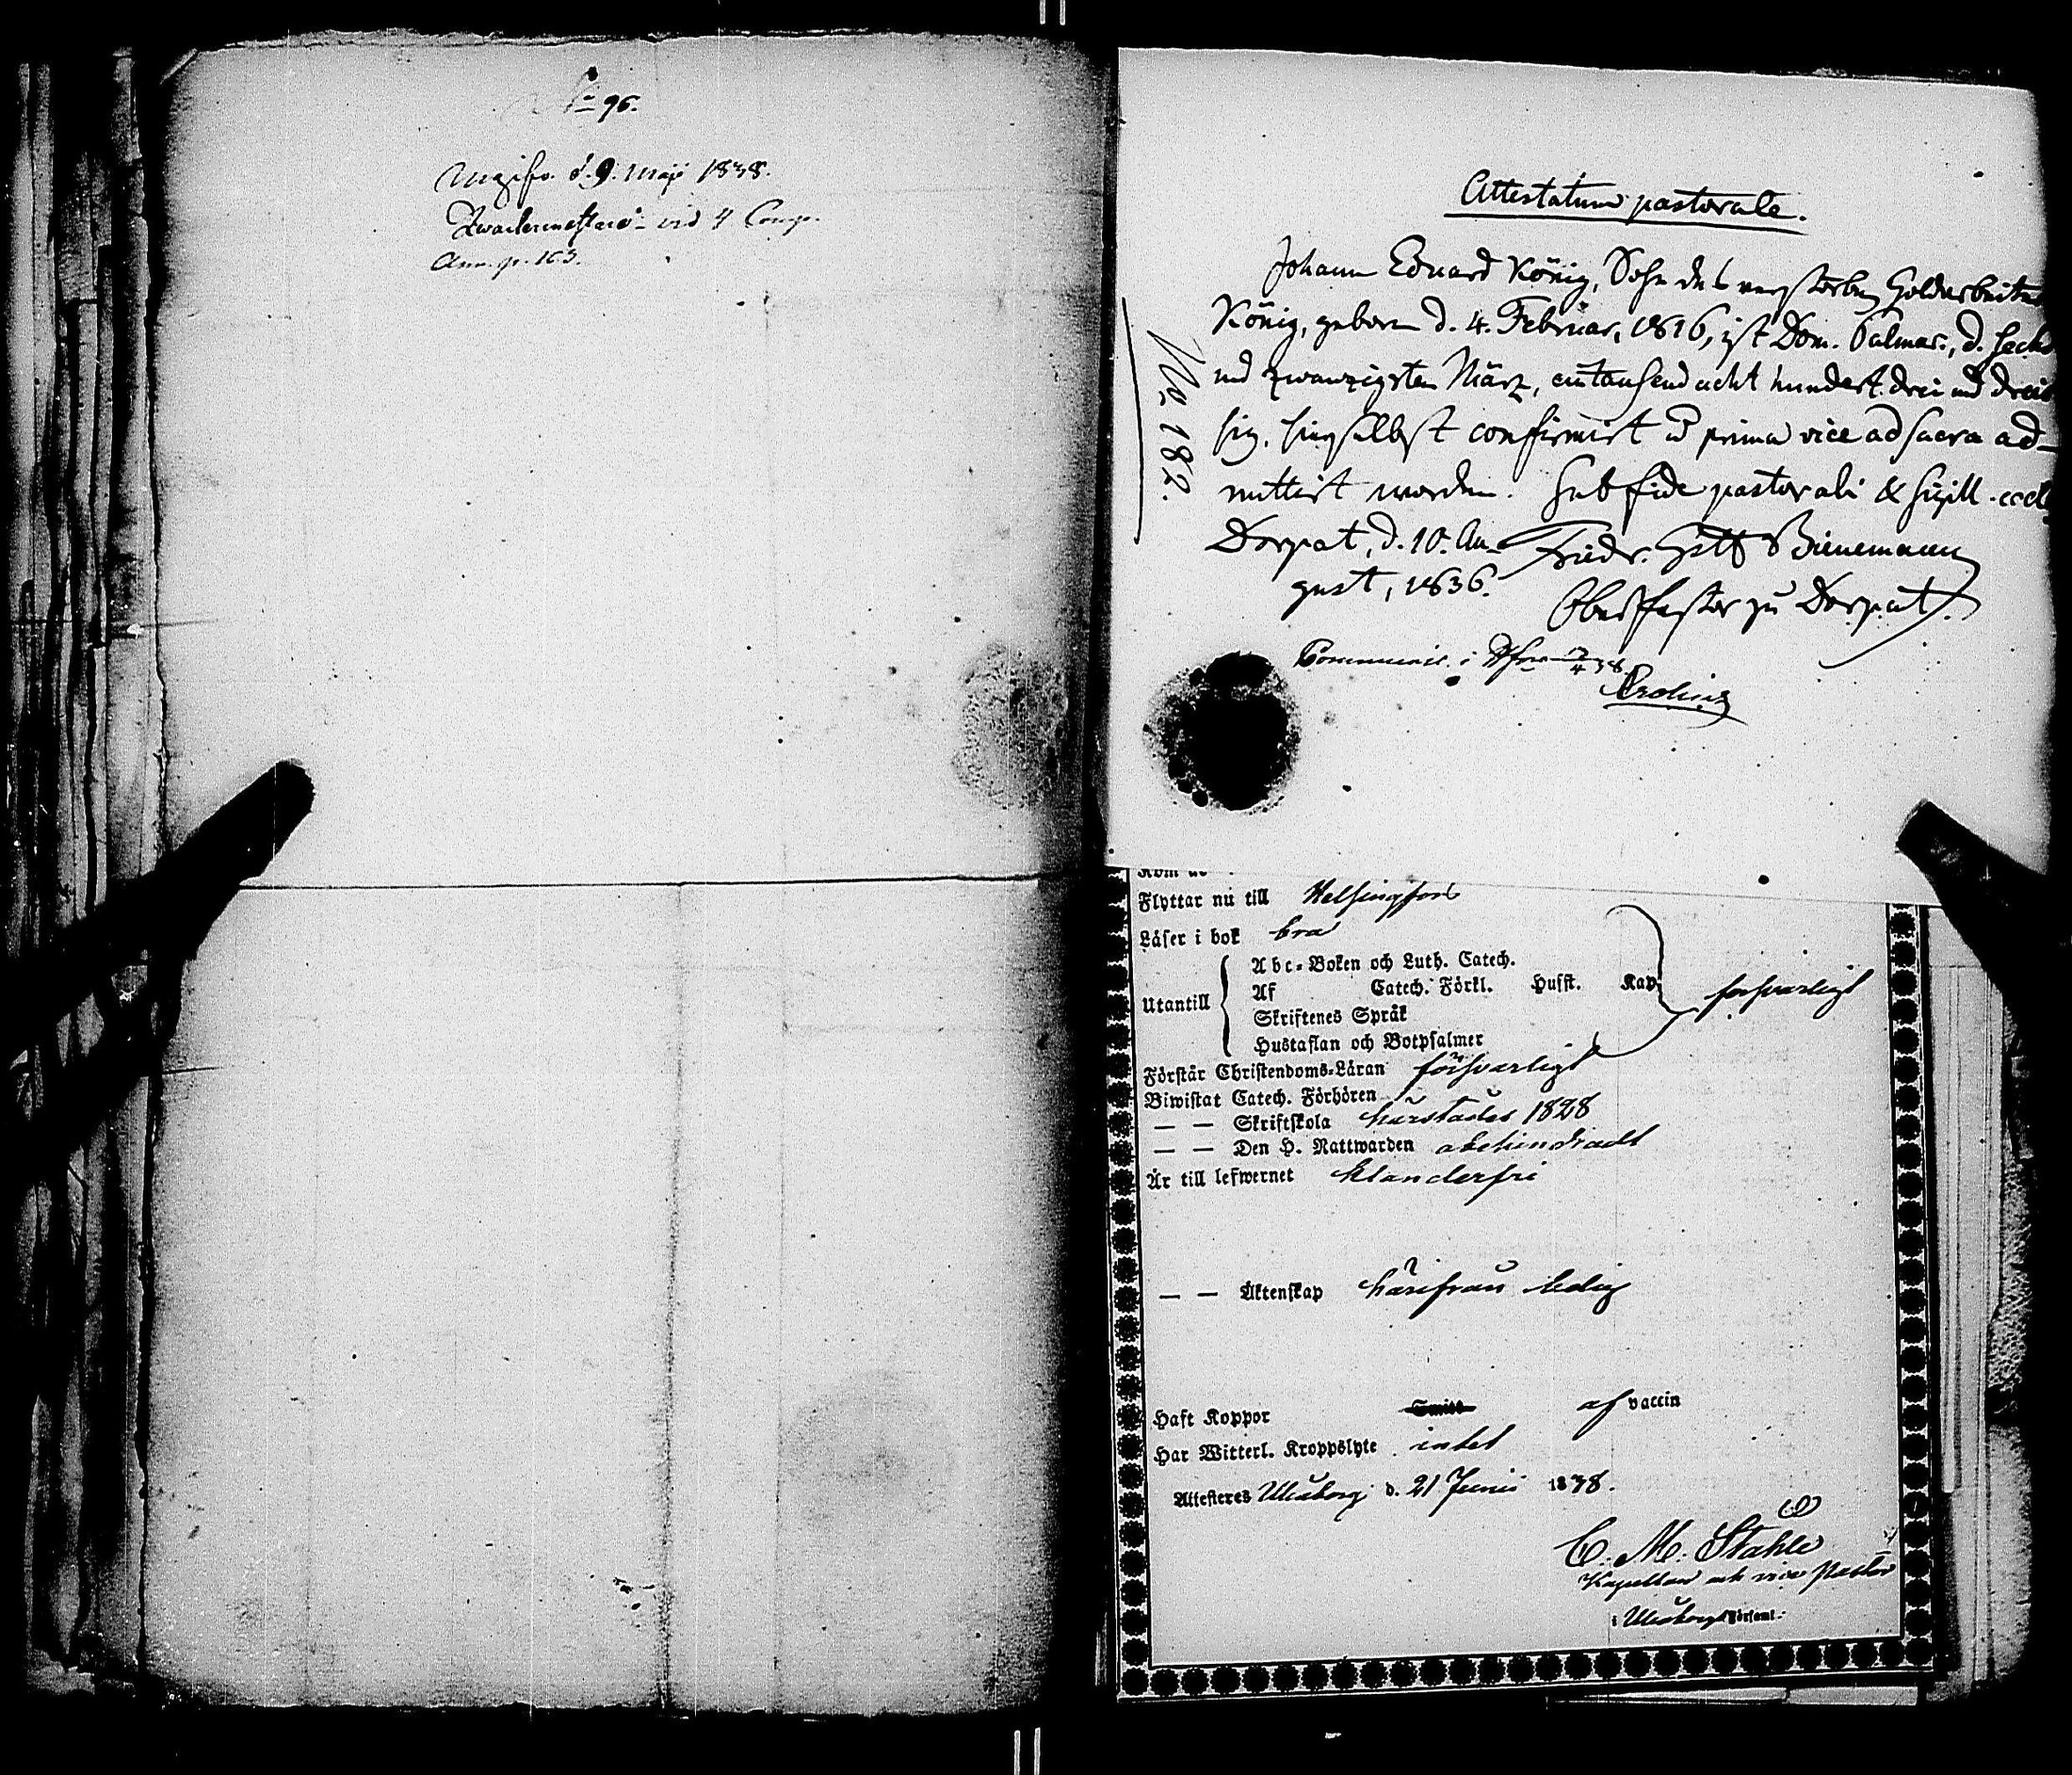 No 96.
Uppgifv. d. 9. Maji 1838.
Qvartermästare vid 4 Comp.
Ann. p. 163.
No 182.
Attestatum pastorale.
Johann Eduard König, Sohn des verstorben Goldarbeiter
König, geboren d. 4. Februar, 1816, ist Dom. Palmar., d. sechs
und zwanzigsten März, eintausend acht hundert drei und dreis
sig, hieselbst confirmirt u prima vice ad sacra ad-
mittirt worden. Sub fide pastorali & sigill. eccl.
Dorpat, d. 10. Au-
gust, 1836.
Friedr. Gottl Bienemann
Oberpastor zu Dorpat.
Communic. i Hfors 38
Flyttar nu till Helsingfors
Läser i bok bra
Utantill
Abc-Boken och Luth. Catech.
Af Catech. Förkl. Husst. Kap.
Skriftenes Språk
Hustaflan och Botpsalmer
försvarligt
Förstår Christendoms-Läran försvarligt
Biwistat Catech. Förhören
— — Skriftskola härstädes 1828
— — Den H. Nattwarden obehindradt
Är till lefwernet klanderfri
— — Äktenskap härifrån ledig
Haft Koppor af vaccin
Har Witterl. Kroppslyte intet
Attesteres Uleåborg d. 21 Junii 1838.
C. M. Ståhle
Kapellan och vice Pastor
i Uleåborgs Församl.